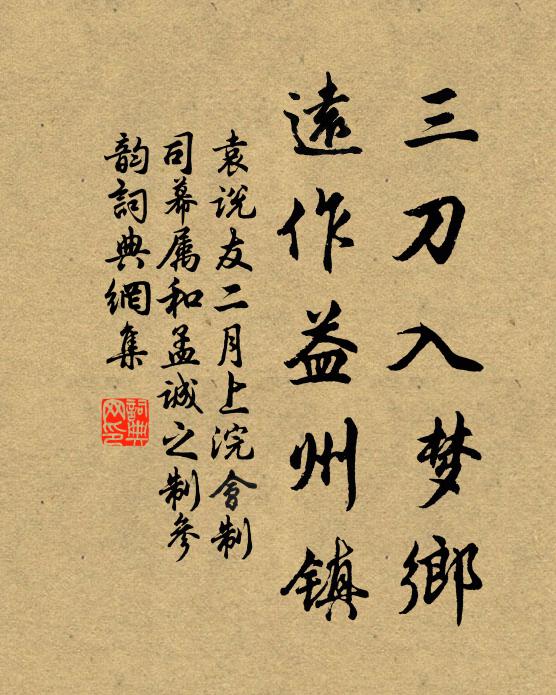 三刀入梦鄉
遠作益州镇
袁说友二月上浣會制
司幕属和孟诚之制參
韵詞典網集
詞典
网印